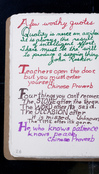 A few worthy quotes
Quality is never an accident
It is always the result
of intelligent effort
There must be the will
to produce a superior thing
John Ruskin
Teachers open the door
but you must enter
yourself.
Chinese Proverb
Four things you can't recover
The Stone after the throw
The Word after it's
The
it is missed
The Time after its gone.
He who knows patience
knows peace
Chinese Proverb